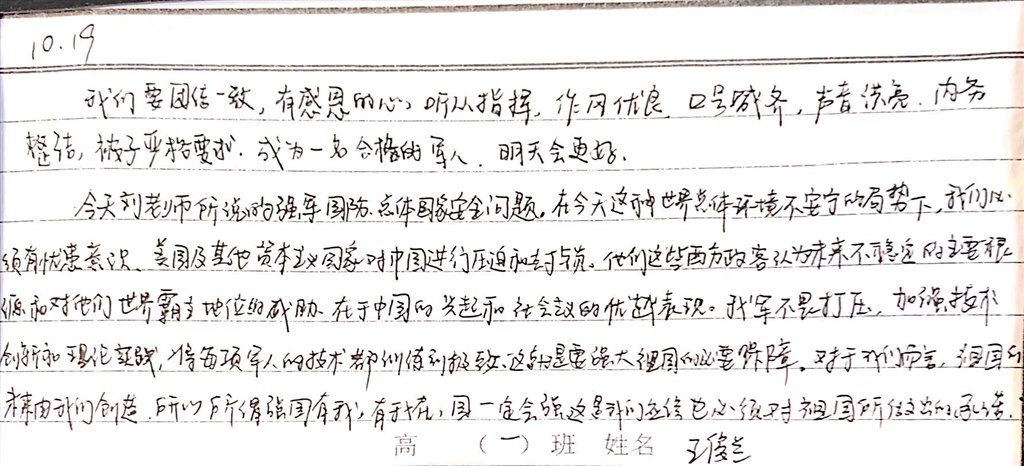 10.19
我们要团结一致,有感恩的心,听从指挥,作风优良,口号喊齐,声音洪亮,内务
整洁,被子严格要求,成为一名合格的军人,明天会更好。
今天刘老师所说的强军国防、总体国家安全问题。在今天这种世界总体环境不安宁的局势下,我们必
须有忧患意识、美国及其他资本主义国家对中国进行压迫和。他们这些西方政客认为未来不稳定的主要根
源和对他们世界霸主地位的威胁,在于中国的兴起和社会主义的优越表现。我军不畏打压,加强技术
创新和理论实战,将每项军人的技术都训练到极致,这就是要强大祖国的必要保障。对于我们而言,祖国的
未来由我们创造,所以所谓强国有我,有我在,国一定会强这是我们坚信也必须对祖国所付出的承诺。
高 (一)班 姓名 王俊兰